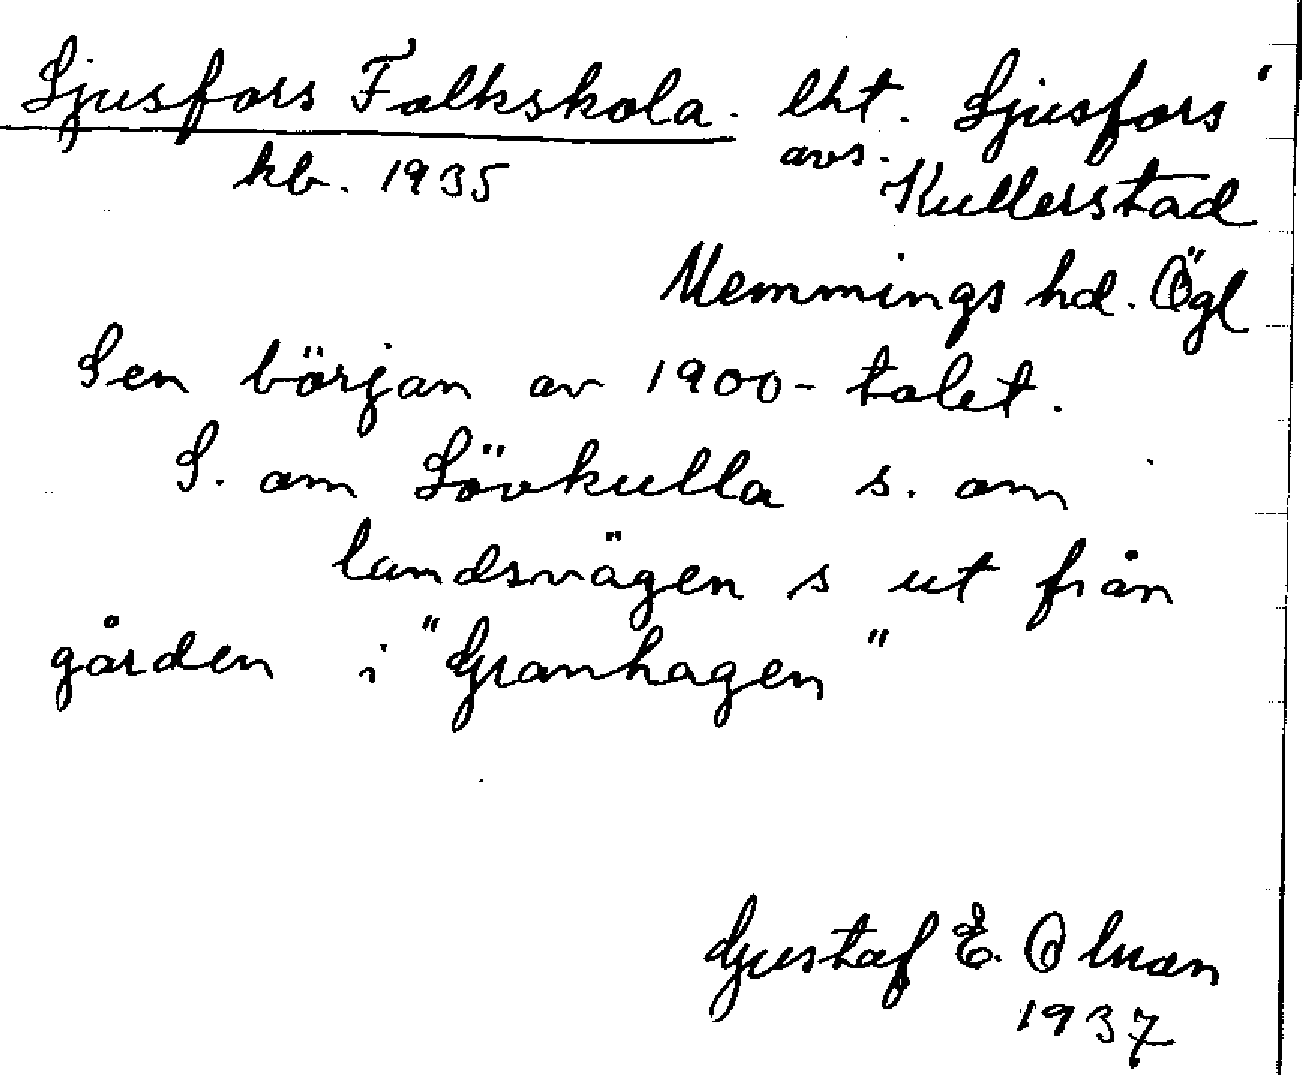 Ljusfors Folkskola. lht. Ljusfors
kb. 1935 avs. Kullerstad
Memmings hd. Ögl
Sen början av 1900-talet.
S. om Lövkulla s. om
landsvägen s ut från
gården i "Granhagen"
Gustaf E. Olsson
1937